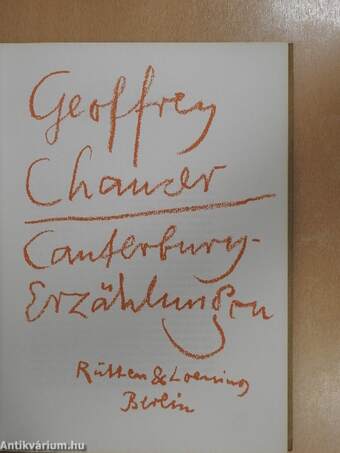 Geoffrey
Chaucer
Canterbury-
Erzählungen
Rütten & Loening
Berlin
Antikvárium.hu